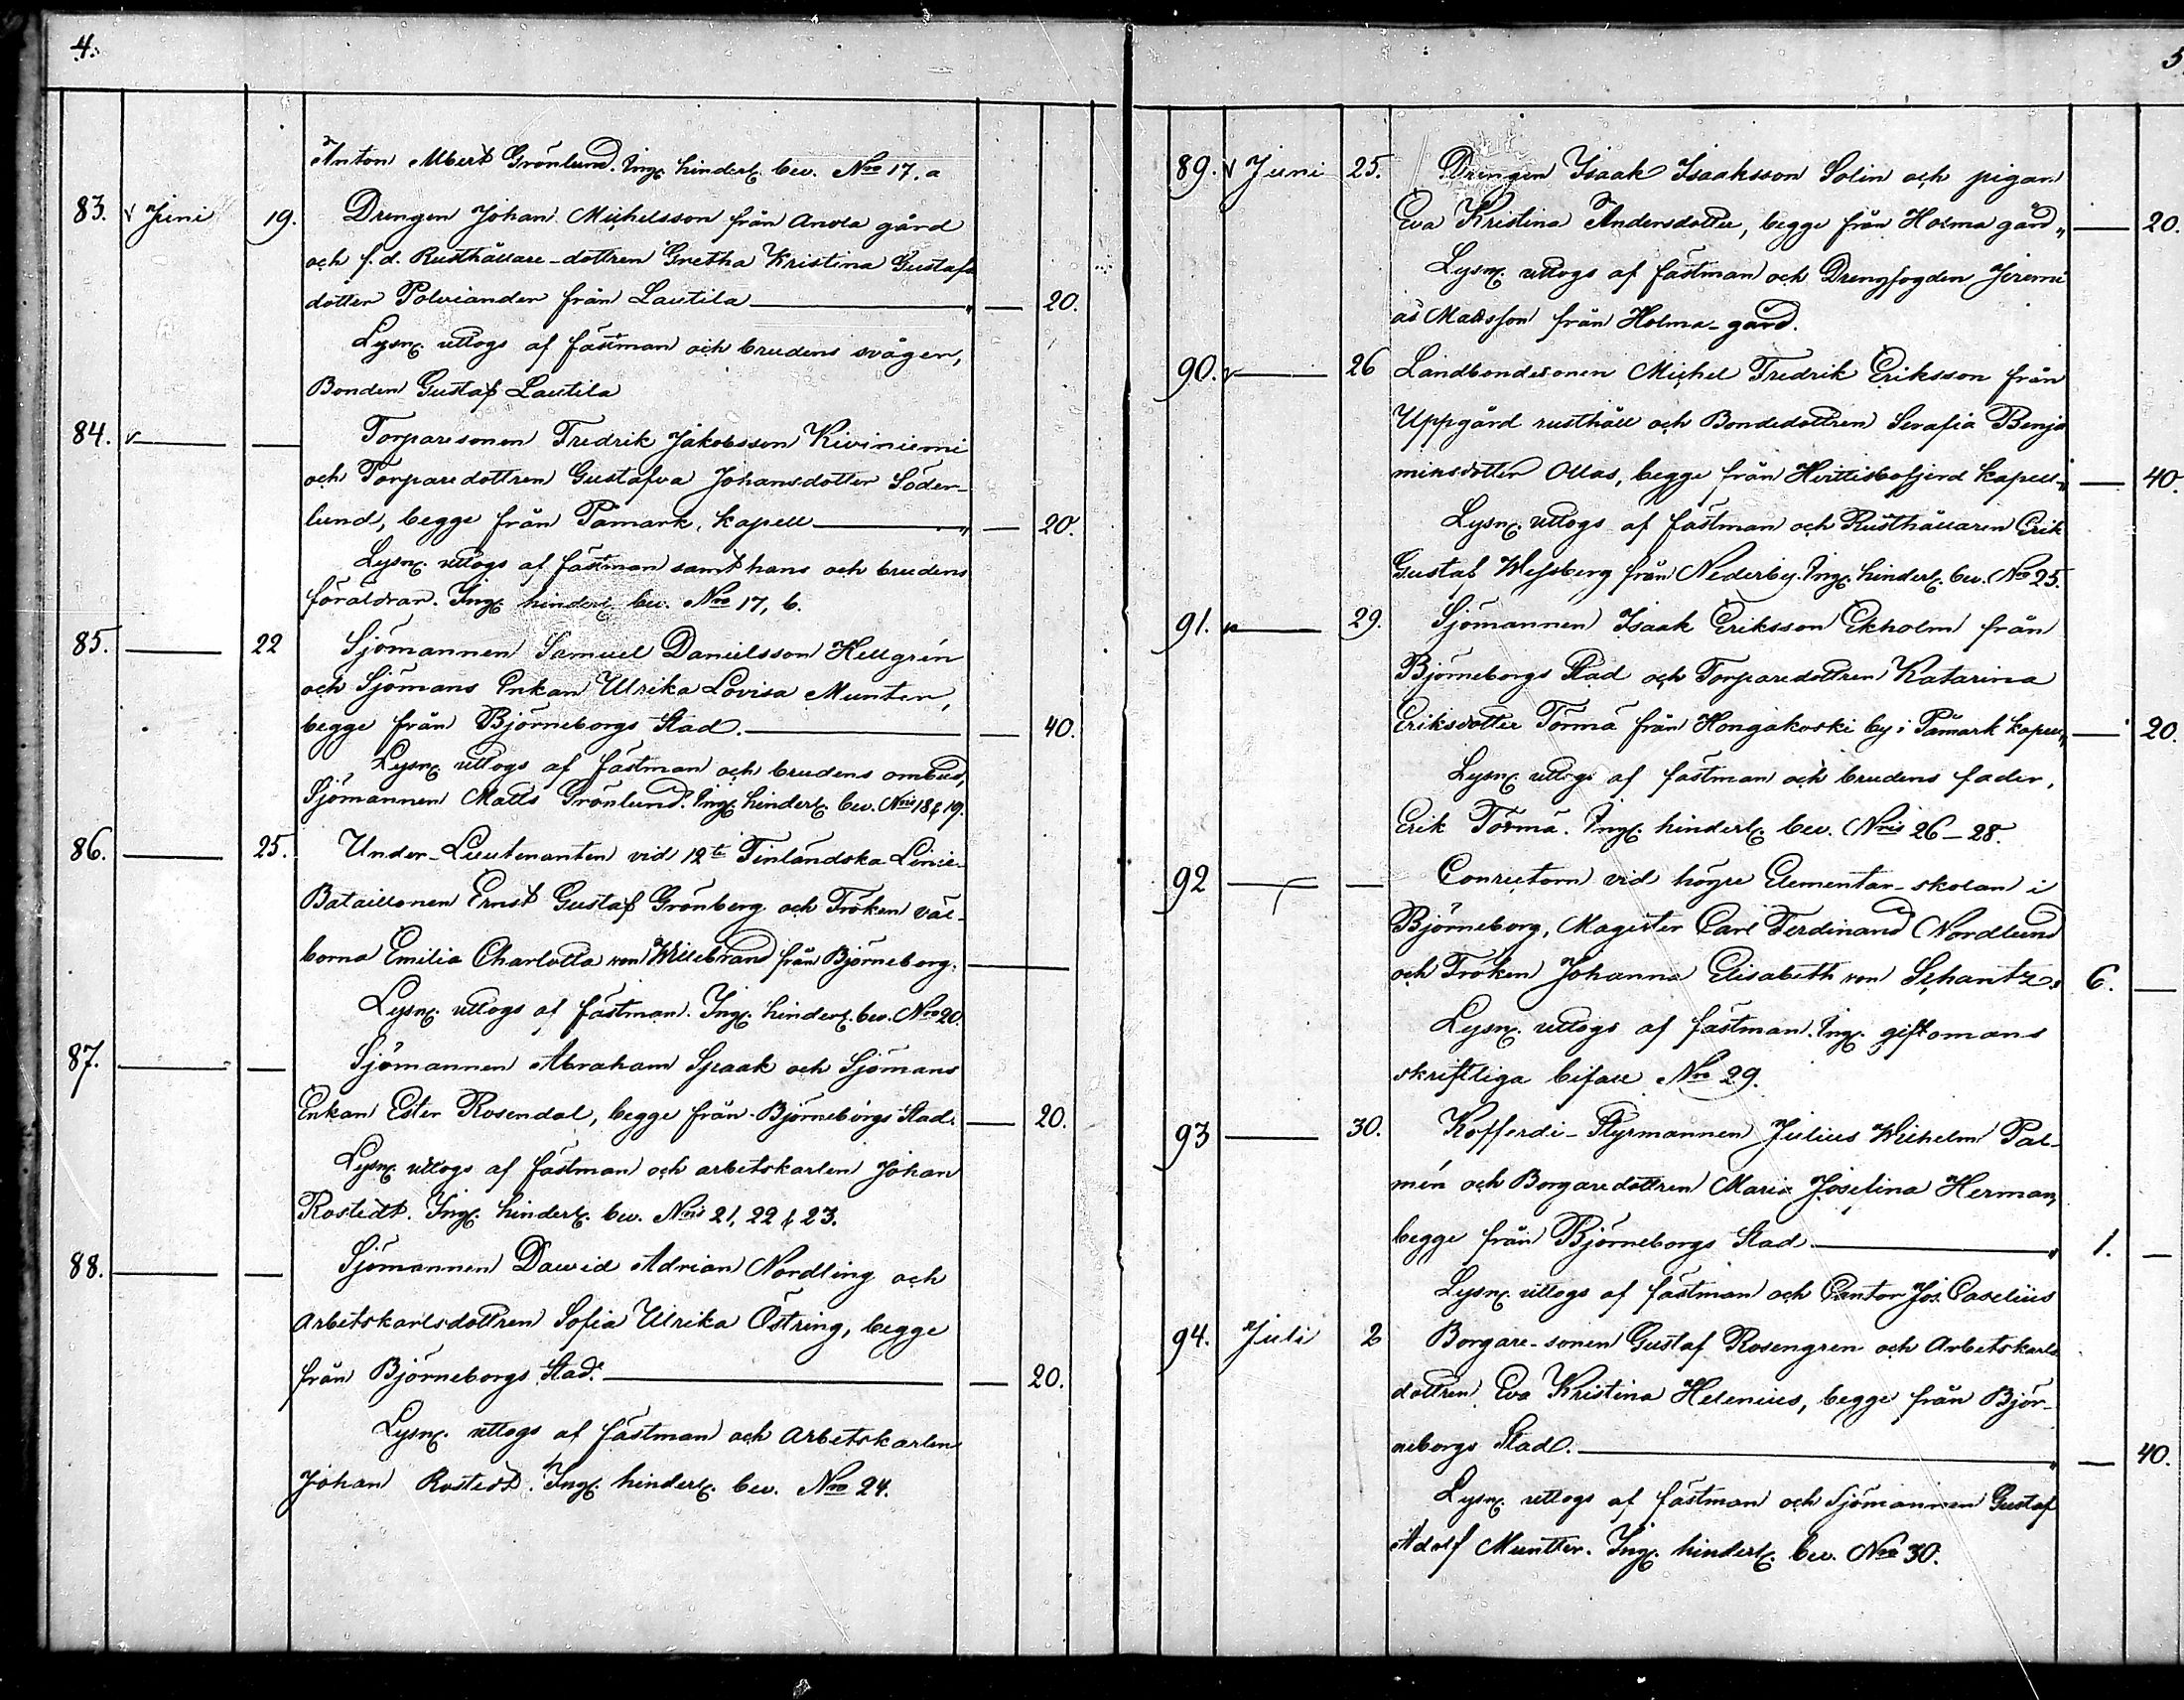 4.
Anton Albert Grönlund. Ing. hinderl. bev. Nro 17. a
83. v Juni 19. Drengen Johan Michelsson från Anola gård
och f. d. Rusthållare-dottren Gretha Kristina Gustafs
dotter Polviander från Lautila — 20.
Lysn. uttogs af fästman och brudens svåger,
Bonden Gustaf Lautila
84. v — — Torparesonen Fredrik Jakobsson Kiviniemi
och Torparedottren Gustafva Johansdotter Söder-
lund, begge från Påmark, kapell — 20.
Lysn. uttogs af fästman samt hans och brudens
föräldrar. Ing. hinderl. bev. Nro 17, b.
85. — 22 Sjömannen Samuel Danielsson Hellgrén
och Sjömans Enkan Ulrika Lovisa Munter,
begge från Björneborgs Stad. — 40.
Lysn. uttogs af fästman och brudens ombud,
Sjömannen Matts Grönlund. Ing. hinderl. bev. Nris 18 & 19.
86. — 25. Under-Lieutenanten vid 12te Finländska Linie-
Bataillonen Ernst Gustaf Grönberg och Fröken väl-
borna Emilia Charlotta von Willebrand från Björneborg. —
Lysn. uttogs af fästman. Ing. hinderl. bev. Nro 20.
87. — — Sjömannen Abraham Spaak och Sjömans
Enkan Ester Rosendal, begge från Björneborgs Stad. — 20.
Lysn. uttogs af fästman och arbetskarlen Johan
Rostedt. Ing. hinderl. bev. Nris 21, 22 & 23.
88. — — Sjömannen Dawid Adrian Nordling och
Arbetskarlsdottren Sofia Ulrika Östring, begge
från Björneborgs Stad. — 20.
Lysn. uttogs af fästman och Arbetskarlen
Johan Rostedt. Ing. hinderl. bev. Nro 24.
5
89. v Juni 25. Drengen Isaak Isaaksson Solin och pigan
Eva Kristina Andersdotter, begge från Holma gård „ — 20.
Lysn. uttogs af fästman och Drengfogden Jeremi
as Matsson från Holma-gård.
90. v — 26 Landbondesonen Michel Fredrik Eriksson från
Uppgård rusthåll och Bondedottren Serafia Benja
minsdotter Ollas, begge från Hvittisbofjerd Kapell „ — 40
Lysn. uttogs af fästman och Rusthållaren Erik
Gustaf Wessberg från Nederby. Ing. hinderl. bev. Nro 25.
91. v — 29. Sjömannen Isaak Eriksson Ekholm från
Björneborgs Stad och Torparedottren Katarina
Eriksdotter Törmä från Hongakoski by i Påmark kapell „ — 20.
Lysn. uttogs af fästman och brudens fader,
Erik Törmä. Ing. hinderl. bev. Nris 26-28.
92 — — Conrectorn vid högre Elementar-skolan i
Björneborg, Magister Carl Ferdinand Nordlund
och Fröken Johanna Elisabeth von Schantz. 6. —
Lysn. uttogs af fästman. Ing. giftomans
skriftliga bifall Nro 29.
93 — 30. Kofferdi-Styrmannen Julius Wilhelm Pal-
mén och Borgaredottren Maria Josefina Herman,
begge från Björneborgs Stad — 1. —
Lysn. uttogs af fästman och Cantor Jos. Caselius
94. Juli 2 Borgare-sonen Gustaf Rosengren och Arbetskarls
dottren Eva Kristina Helenius, begge från Björ-
neborgs Stad. — 40.
Lysn. uttogs af fästman och Sjömannen Gustaf
Adolf Muntter. Ing. hinderl. bev. Nro 30.